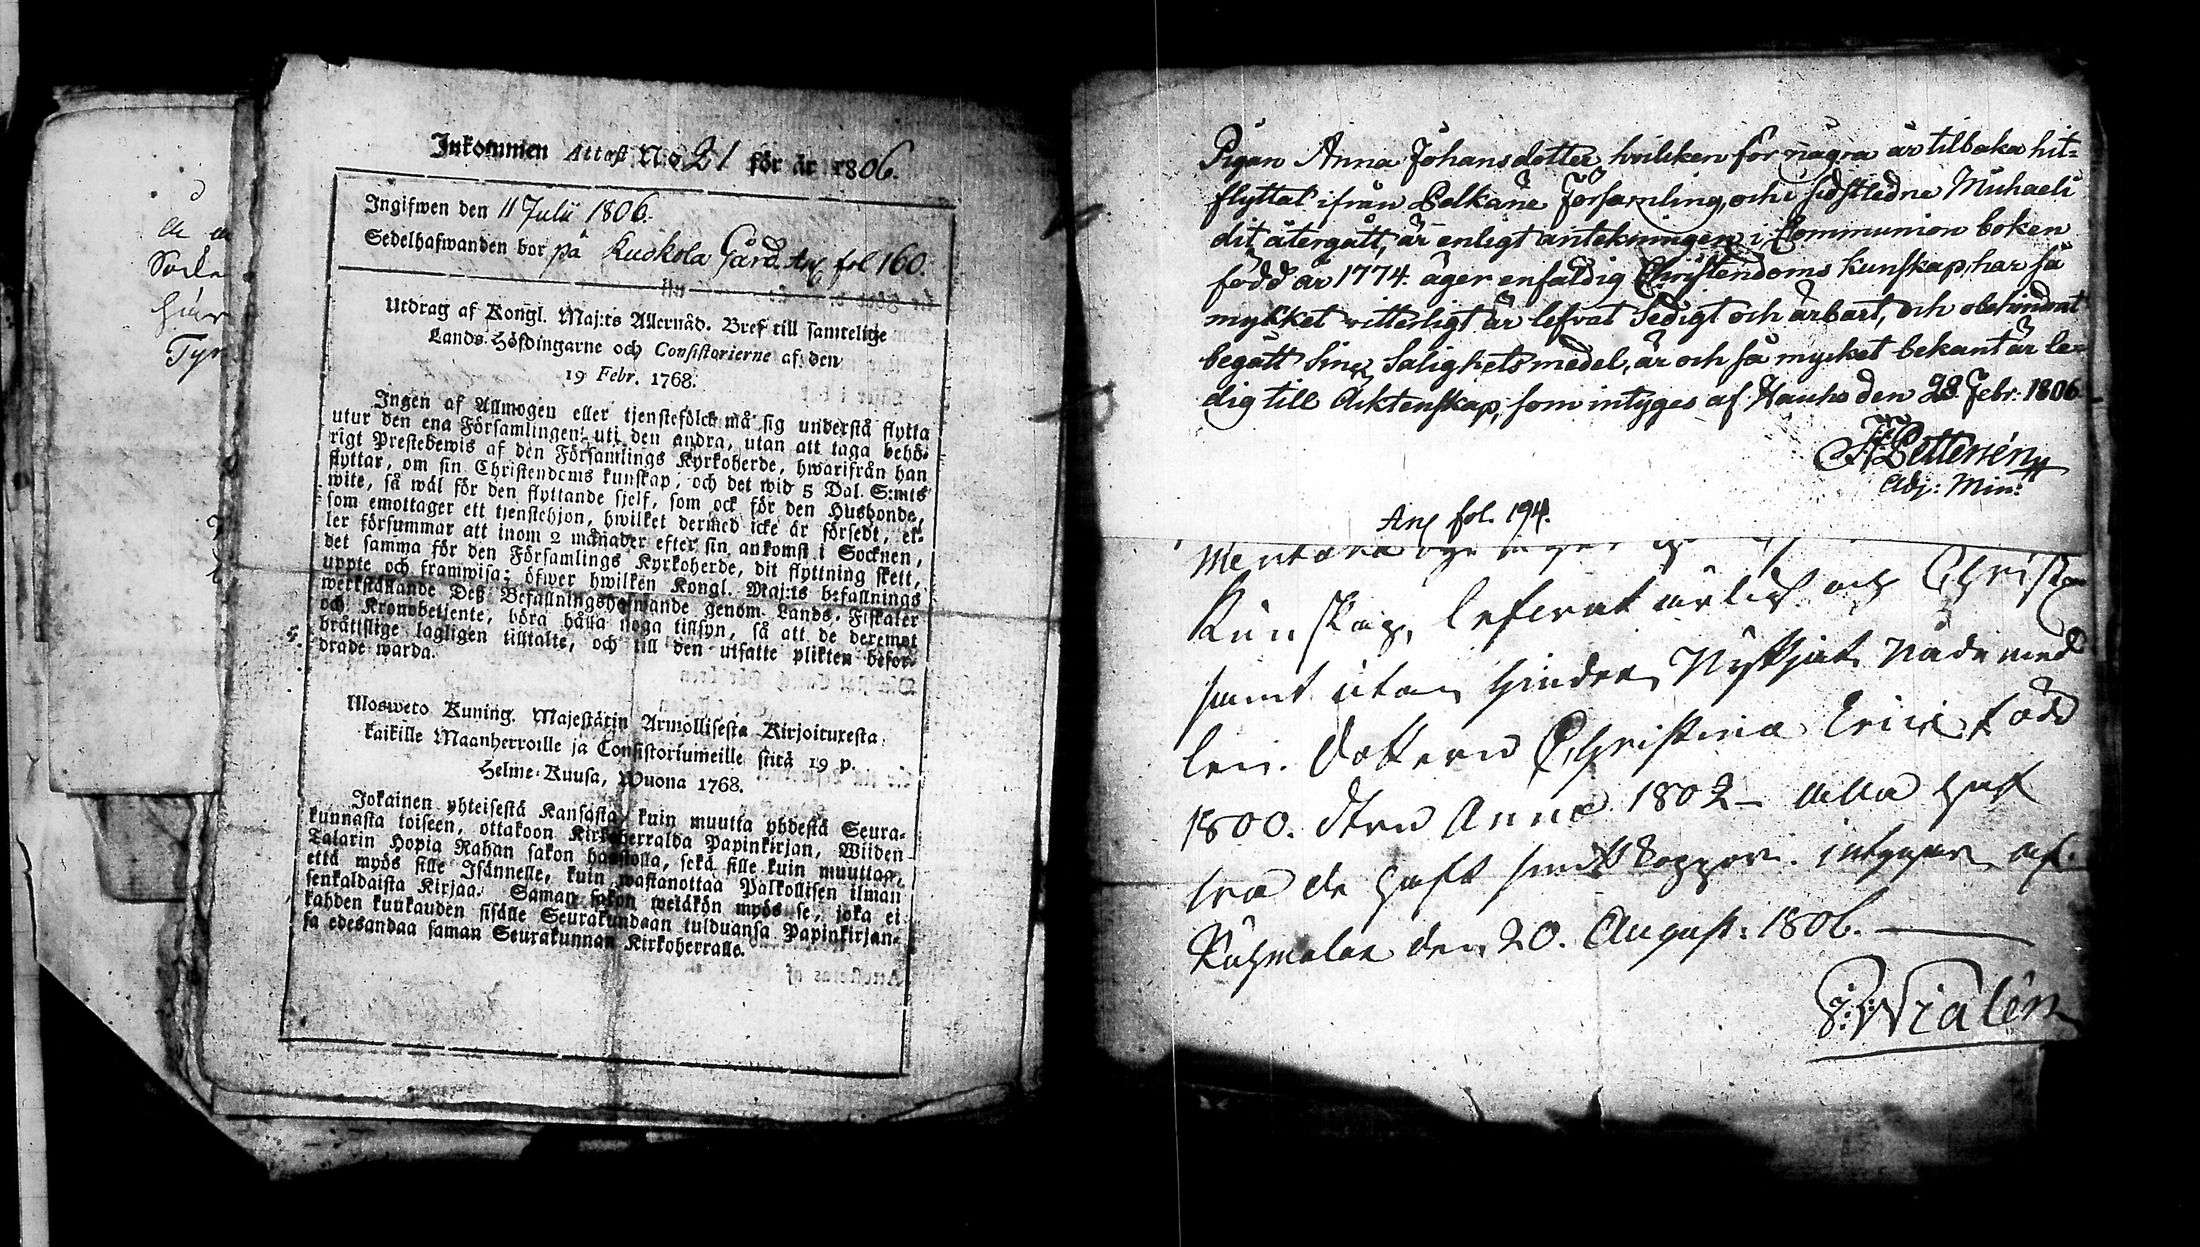 Inkommen Attest. N:o 21 för år 1806.
Ingifwen den 11 Julii 1806.
Sedelhafwanden bor på Kuokola Gård. Anf fol 160.
Utdrag af Kongl. Maj:ts Allernåd. Bref till samtelige
Lands-Höfdingarne och Consistorierne af den
19 Febr. 1768.
Ingen af Allmogen eller tjenstefolck må sig understå flytta
utur den ena Församlingen uti den andra, utan att taga behö-
rigt Prestebewis af den Församlings Kyrkoherde, hwarifrån han
flyttar, om sin Christendoms kunskap, och det wid 5 Dal. S:mts
wite, så wäl för den flyttande sjelf, som ock för den Husbonde,
som emottager ett tjenstehjon, hwilket dermed icke är försedt, el-
ler försummar att inom 2 månader efter sin ankomst i Socknen,
det samma för den Församlings Kyrkoherde, dit flyttning skett,
uppte och framwisa; öfwer hwilken Kongl. Maj:ts befallnings
werkställande Deß Befallningshafwande genom Lands-Fiskaler
och Kronobetjente, böra hålla noga tillsyn, så att de deremot
bråttslige lagligen tilltalte, och till den utsatte plikten befor-
drade warda.
Mosweto Kuning. Majestätin Armollisesta Kirjoituxesta
kaikille Maanherroille ja Consistoriumeille siitä 19 p.
Helme-Kuusa, Wuona 1768.
Jokainen yhteisestä Kansasta, kuin muutta yhdestä Seura-
kunnasta toiseen, ottakoon Kirkkoherralda Papinkirjan, Wiiden
Talarin Hopia Rahan sakon haastolla, sekä sille kuin muuttaa,
että myös sille Isännelle, kuin wastanottaa Palkollisen ilman
senkaldaista Kirjaa. Saman sakon wetäkön myös se, joka ei
kahden kuukauden sisälle Seurakundaan tulduansa Papinkirjan-
sa edesandaa saman Seurakunnan Kirkoherralle.
Pigan Anna Johansdotter, hvilken för några år tilbaka hit-
flyttat ifrån Palkäne Församling, och sidstledne Michaeli
dit återgått, är enligt antekningen i Communion boken
född år 1774. äger enfaldig Christendoms kunskap, har så
mykket vitterligt är lefvat Sedigt och ärbart, och obehindrat
begått Sine Salighetsmedel, är och så mycket bekant är le-
dig till Äktenskap, som intyges af Hauho den 28 Febr: 1806
Petterién
Adj: Min:
Anf fol. 194.
Kunskap, lefvrat ärligt och Christ
samt utan hinder Nyttjat Nåde med
len. Dottern Christina född
1800. dten Anna 1802 – alla haf
va de haft smittkoppor. intygar af.
Kuhmalax den 20. August: 1806.
Wialén